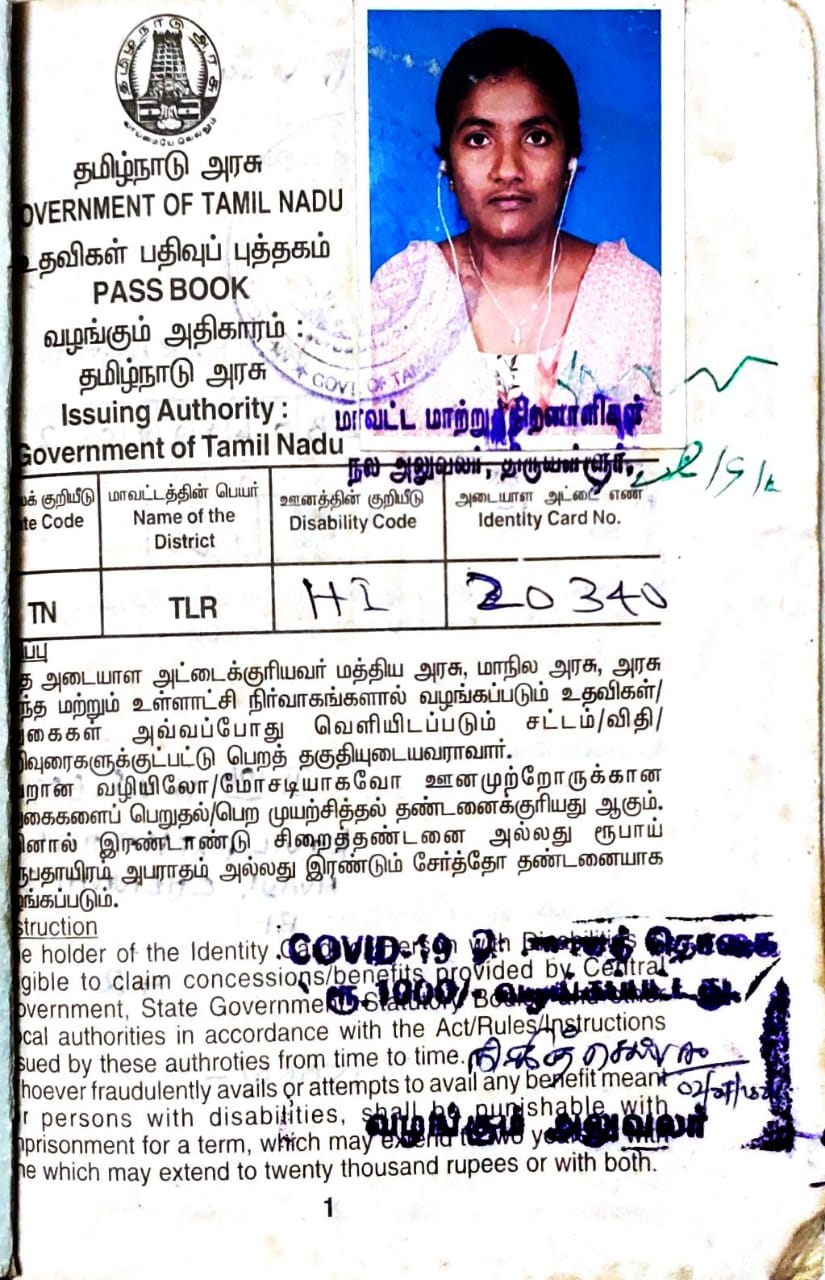 தமிழ்நாடு அரசு
வாய்மையே வெல்லும்
தமிழ்நாடு அரசு
OVERNMENT OF TAMIL NADU
உதவிகள் பதிவுப் புத்தகம்
PASS BOOK
வழங்கும் அதிகாரம் :
தமிழ்நாடு அரசு
Issuing Authority :
Government of Tamil Nadu
GOVT. OF TAM
மாவட்ட மாற்றுத்திறனாளிகள்
நல அலுவலர், திருவள்ளூர்.
க் குறியீடு மாவட்டத்தின் பெயர் ஊனத்தின் குறியீடு அடையாள அட்டை எண்
te Code Name of the District Disability Code Identity Card No.
TN TLR HI 20340
ப்பு
த அடையாள அட்டைக்குரியவர் மத்திய அரசு, மாநில அரசு, அரசு
ந்த மற்றும் உள்ளாட்சி நிர்வாகங்களால் வழங்கப்படும் உதவிகள்/
கைகள் அவ்வப்போது வெளியிடப்படும் சட்டம்/விதி/
வுரைகளுக்குட்பட்டு பெறத் தகுதியுடையவராவார்.
றான வழியிலோ/மோசடியாகவோ ஊனமுற்றோருக்கான
கைகளைப் பெறுதல்/பெற முயற்சித்தல் தண்டனைக்குரியது ஆகும்.
னால் இரண்டாண்டு சிறைத்தண்டனை அல்லது ரூபாய்
ருபதாயிரம் அபராதம் அல்லது இரண்டும் சேர்த்தோ தண்டனையாக
ங்கப்படும்.
struction
e holder of the Identity Card Person with Disabilities
gible to claim concessions/benefits provided by Central
overnment, State Government, Statutory Bodies and other
cal authorities in accordance with the Act/Rules/Instructions
sued by these authroties from time to time.
hoever fraudulently avails or attempts to avail any benefit meant
r persons with disabilities, shall be punishable with
prisonment for a term, which may extend to two years with
ne which may extend to twenty thousand rupees or with both.
COVID-19 தொகை
ரூ.1000/- வழங்கப்பட்டது.
வழங்கும் அலுவலர்
1